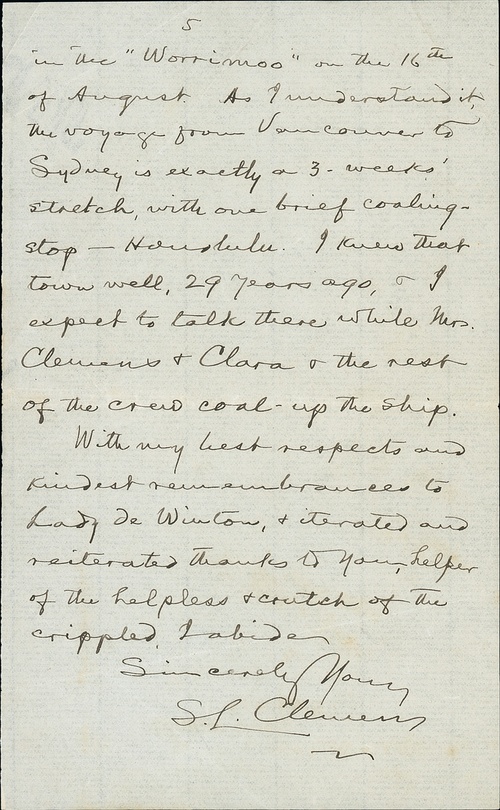 5
in the "Worrimoo" on the 16th
of August. As I understand it,
the voyage from Vancouver to
Sydney is exactly a 3-weeks'
stretch, with one brief coaling-
stop — Honolulu. I knew that
town well, 29 years ago, & I
expect to talk there while Mrs.
Clemens & Clara & the rest
of the crew coal-up the ship.
With my best respects and
kindest remembrances to
Lady de Winton, & iterated and
reiterated thanks to you, helper
of the helpless & crutch of the
crippled, I abide
Sincerely Yours
S. L. Clemens